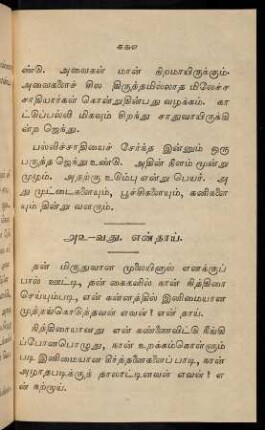 ௧௧௦
ண்டு. அவைகள் மான் நிறமாயிருக்கும்.
அவைகளைச் சில திருத்தமில்லாத மிலேச்ச
சாதியார்கள் கொன்றுதின்பது வழக்கம். கா
ட்டுப்பல்லி மிகவும் சிறந்து சாதுவாயிருக்கி
ன்ற ஜெந்து.
பல்லிச்சாதியைச் சேர்ந்த இன்னும் ஒரு
பருத்த ஜெந்து உண்டு. அதின் நீளம் மூன்று
முழம். அதற்கு உடும்பு என்று பெயர். அ
து முட்டைகளையும், பூச்சிகளையும், கனிகளை
யும் தின்று வளரும்.
அ௨-வது. என் தாய்.
தன் மிருதுவான முலையினால் எனக்குப்
பால் ஊட்டி, தன் கைகளில் நான் நித்திரை
செய்யும்படி, என் கன்னத்தில் இனிமையான
முத்தங்கொடுத்தவள் எவள்! என் தாய்.
நித்திரையானது என் கண்ணைவிட்டு நீங்கி
ப்போனபொழுது, நான் உறக்கம்கொள்ளும்
படி இனிமையான கீர்த்தனைகளைப் பாடி, நான்
அழாதபடிக்குத் தாலாட்டினவள் எவள்! எ
ன் கற்றாய்.